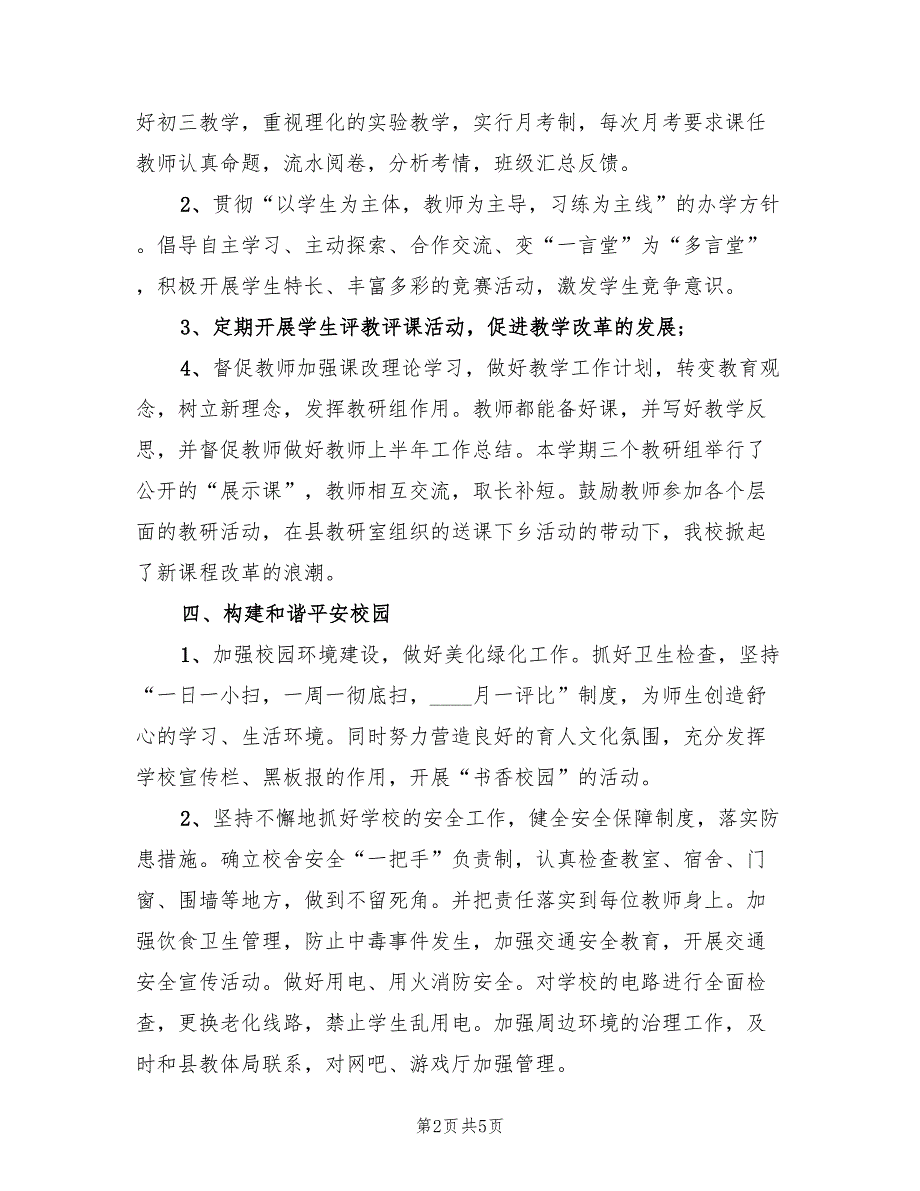 好初三教学，重视理化的实验教学，实行月考制，每次月考要求课任
教师认真命题，流水阅卷，分析考情，班级汇总反馈。
2、贯彻“以学生为主体，教师为主导，习练为主线”的办学方针
。倡导自主学习、主动探索、合作交流、变“一言堂”为“多言堂”
，积极开展学生特长、丰富多彩的竞赛活动，激发学生竞争意识。
3、定期开展学生评教评课活动，促进教学改革的发展；
4、督促教师加强课改理论学习，做好教学工作计划，转变教育观
念，树立新理念，发挥教研组作用。教师都能备好课，并写好教学反
思，并督促教师做好教师上半年工作总结。本学期三个教研组举行了
公开的“展示课”，教师相互交流，取长补短。鼓励教师参加各个层
面的教研活动，在县教研室组织的送课下乡活动的带动下，我校掀起
了新课程改革的浪潮。
四、构建和谐平安校园
1、加强校园环境建设，做好美化绿化工作。抓好卫生检查，坚持
“一日一小扫，一周一彻底扫，____月一评比”制度，为师生创造舒
心的学习、生活环境。同时努力营造良好的育人文化氛围，充分发挥
学校宣传栏、黑板报的作用，开展“书香校园”的活动。
2、坚持不懈地抓好学校的安全工作，健全安全保障制度，落实防
患措施。确立校舍安全“一把手”负责制，认真检查教室、宿舍、门
窗、围墙等地方，做到不留死角。并把责任落实到每位教师身上。加
强饮食卫生管理，防止中毒事件发生，加强交通安全教育，开展交通
安全宣传活动。做好用电、用火消防安全。对学校的电路进行全面检
查，更换老化线路，禁止学生乱用电。加强周边环境的治理工作，及
时和县教体局联系，对网吧、游戏厅加强管理。
第2页共5页